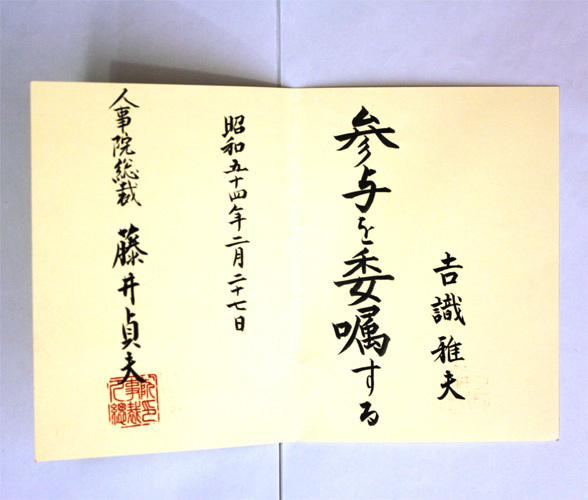 吉識雅夫
参与を委嘱する
昭和五十四年二月二十七日
人事院総裁 藤井貞夫
人事院総裁之印